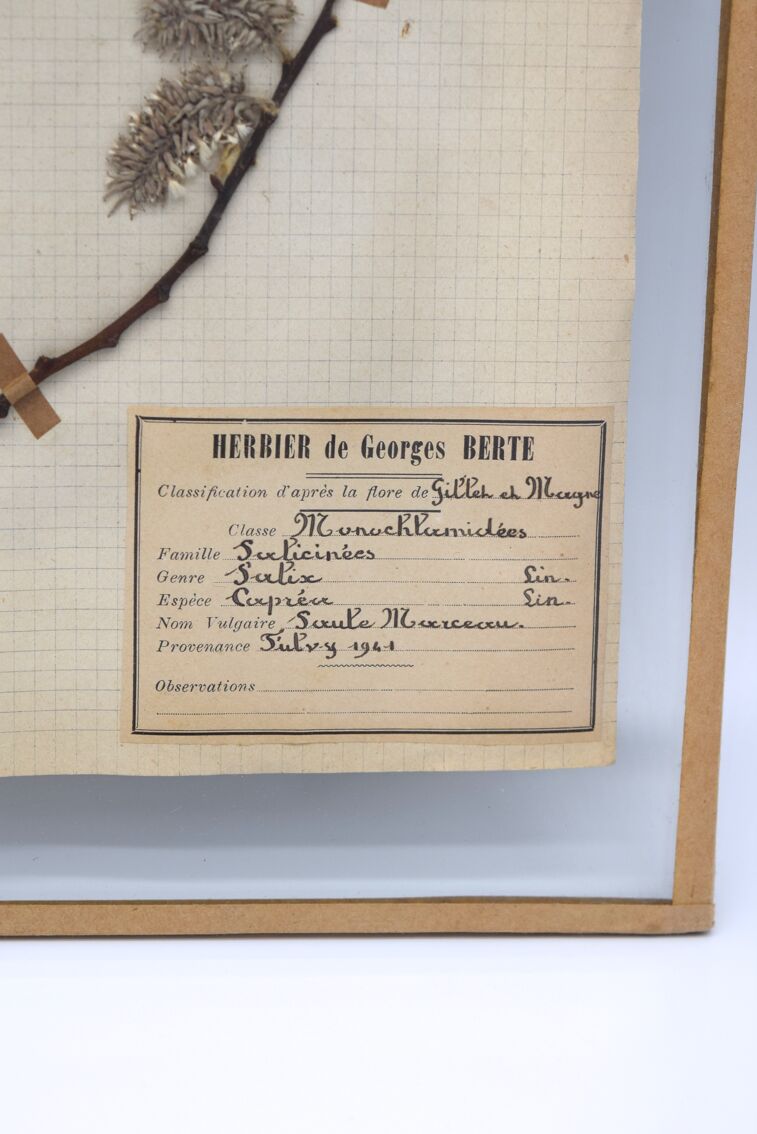 HERBIER de Georges BERTE
Classification d'après la flore de Gillet et Magne
Classe Monochlamidées
Famille Salicinées
Genre Salix Lin.
Espèce Capréa Lin.
Nom Vulgaire Saule Marceau.
Provenance Tulvy 1941
Observations